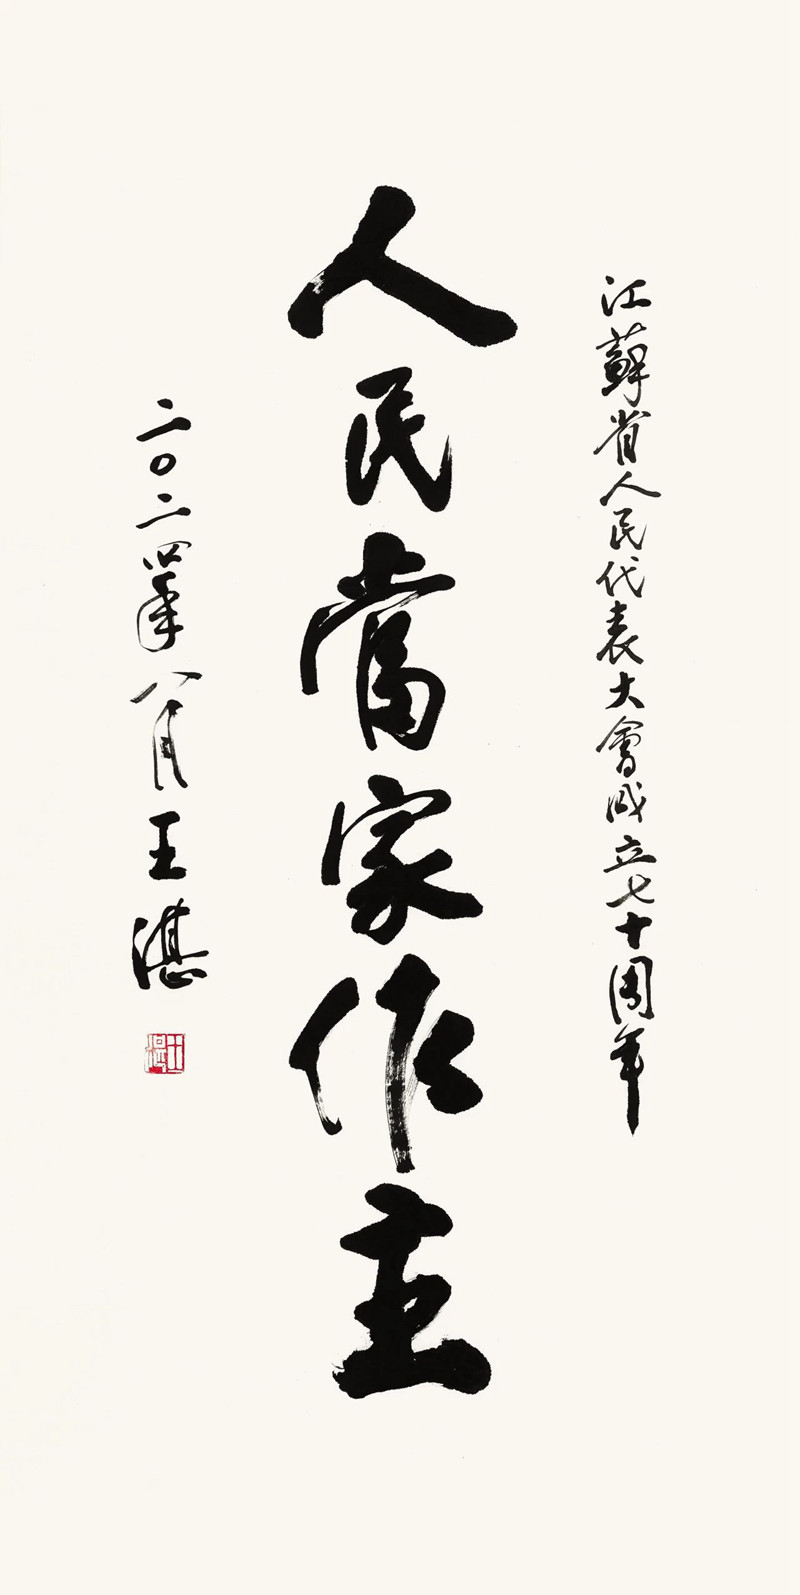 江蘇省人民代表大會成立七十周年
人民當家作主
二〇二四年八月王湛